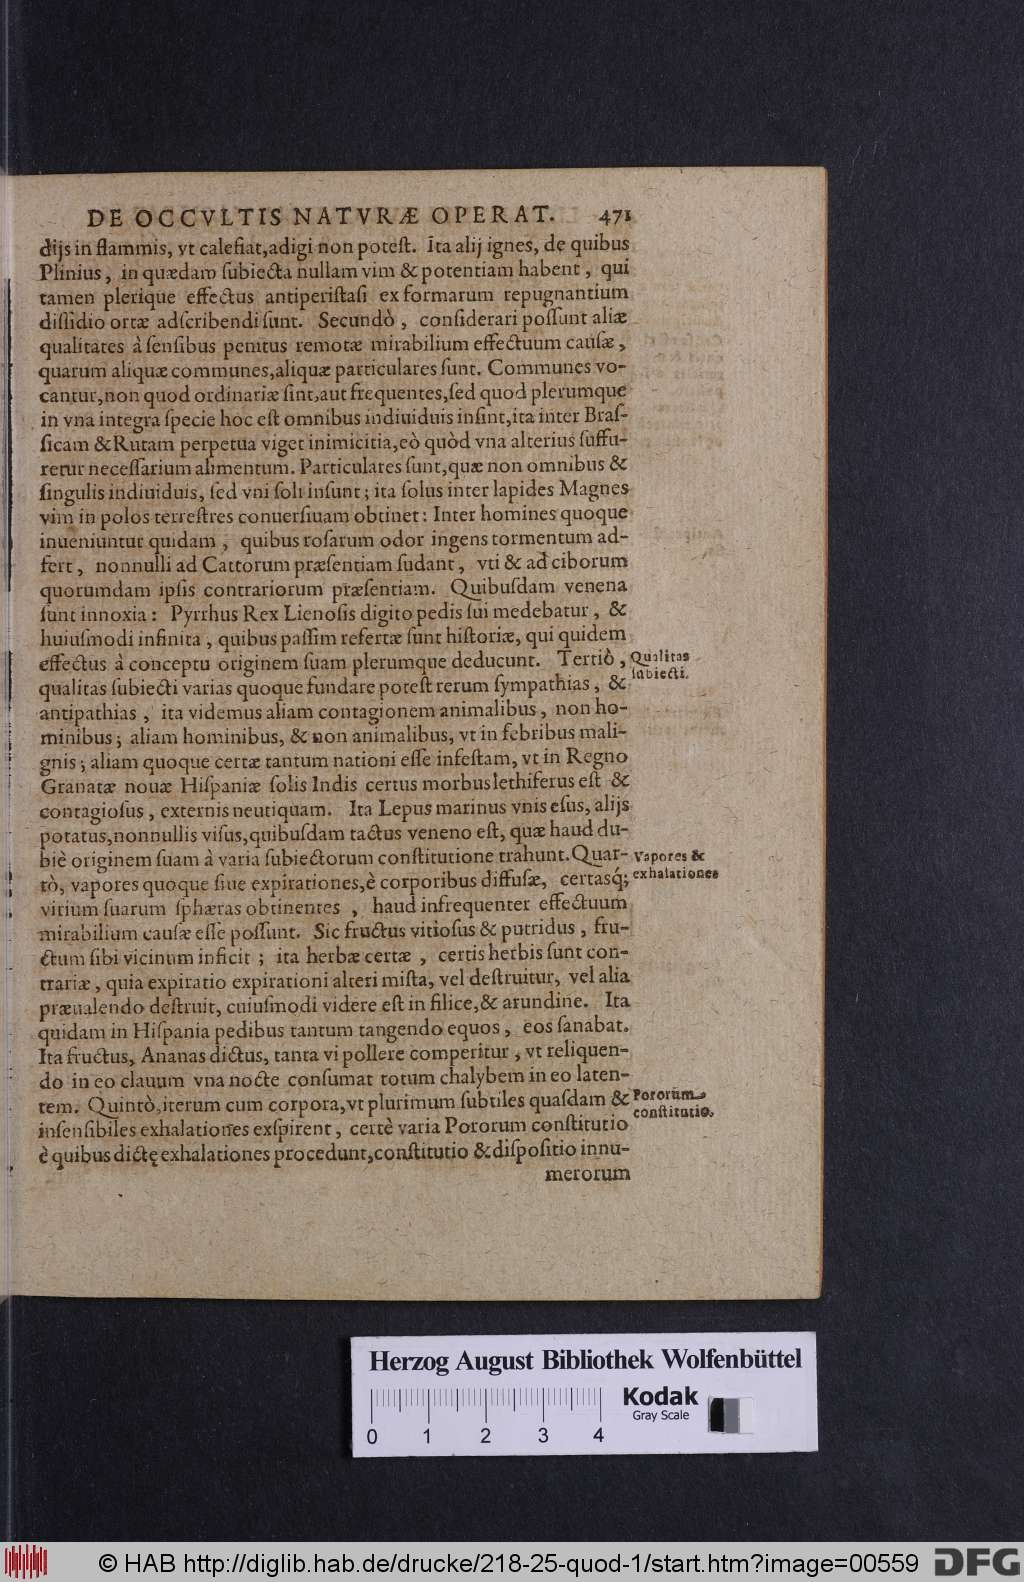 DE OCCVLTIS NATVRÆ OPERAT. 471
dijs in flammis, vt calefiat,adigi non poteſt. Ita alij ignes, de quibus
Plinius, in quædam ſubiecta nullam vim & potentiam habent, qui
tamen plerique effectus antiperiſtaſi ex formarum repugnantium
diſſidio ortæ adſcribendi ſunt. Secundò, conſiderari poſſunt aliæ
qualitates à ſenſibus penitus remotæ mirabilium effectuum cauſæ,
quarum aliquæ communes,aliquæ particulares ſunt. Communes vo-
cantur,non quod ordinariæ ſint,aut frequentes,ſed quod plerumque
in vna integra ſpecie hoc eſt omnibus indiuiduis inſint,ita inter Braſ-
ſicam & Rutam perpetua viget inimicitia,eò quòd vna alterius ſuffu-
retur neceſſarium alimentum. Particulares ſunt,quæ non omnibus &
ſingulis indiuiduis, ſed vni ſoli inſunt; ita ſolus inter lapides Magnes
vim in polos terreſtres conuerſiuam obtinet: Inter homines quoque
inueniuntur quidam, quibus roſarum odor ingens tormentum ad-
fert, nonnulli ad Cattorum præſentiam ſudant, vti & ad ciborum
quorumdam ipſis contrariorum præſentiam. Quibuſdam venena
ſunt innoxia: Pyrrhus Rex Lienoſis digito pedis ſui medebatur, &
huiuſmodi infinita, quibus paſſim refertæ ſunt hiſtoriæ, qui quidem
effectus à conceptu originem ſuam plerumque deducunt. Tertiò,
Qualitas
ſubiecti.
qualitas ſubiecti varias quoque fundare poteſt rerum ſympathias, &
antipathias, ita videmus aliam contagionem animalibus, non ho-
minibus; aliam hominibus, & non animalibus, vt in febribus mali-
gnis; aliam quoque certæ tantum nationi eſſe infeſtam, vt in Regno
Granatæ nouæ Hiſpaniæ ſolis Indis certus morbus lethiferus eſt &
contagioſus, externis neutiquam. Ita Lepus marinus vnis eſus, alijs
potatus,nonnullis viſus,quibuſdam tactus veneno eſt, quæ haud du-
biè originem ſuam à varia ſubiectorum conſtitutione trahunt. Quar-
Vapores &
exhalationes
tò, vapores quoque ſiue expirationes,è corporibus diffuſæ, certasq́;
virium ſuarum ſphæras obtinentes, haud infrequenter effectuum
mirabilium cauſæ eſſe poſſunt. Sic fructus vitioſus & putridus, fru-
ctum ſibi vicinum inficit; ita herbæ certæ, certis herbis ſunt con-
trariæ, quia expiratio expirationi alteri miſta, vel deſtruitur, vel alia
præualendo deſtruit, cuiuſmodi videre eſt in filice,& arundine. Ita
quidam in Hiſpania pedibus tantum tangendo equos, eos ſanabat.
Ita fructus, Ananas dictus, tanta vi pollere comperitur, vt reliquen-
do in eo clauum vna nocte conſumat totum chalybem in eo laten-
tem. Quintò,iterum cum corpora,vt plurimum ſubtiles quaſdam &
Pororum
conſtitutio.
inſenſibiles exhalationes exſpirent, certè varia Pororum conſtitutio
è quibus dictę exhalationes procedunt,conſtitutio & diſpoſitio innu-
merorum
Herzog August Bibliothek Wolfenbüttel
0 1 2 3 4
Kodak
Gray Scale
© HAB http://diglib.hab.de/drucke/218-25-quod-1/start.htm?image=00559
DFG